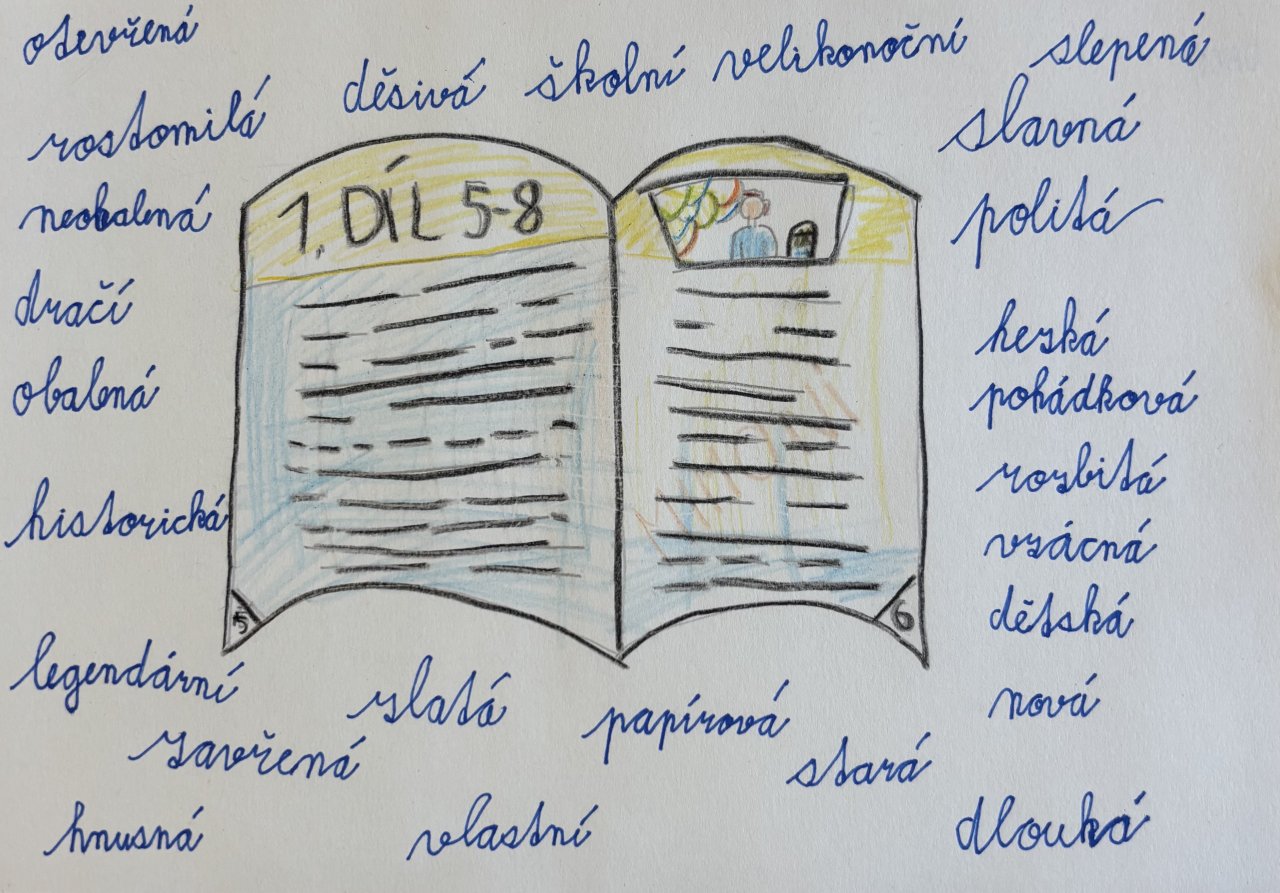 otevřená
děsivá školní velikonoční slepená
rostomilá
slavná
neobalená
politá
dračí
hezká
obalená
pohádková
rozbitá
historická
vzácná
dětská
legendární
zlatá
papírová
nová
zavřená
stará
hnusná
vlastní
dlouhá
1. DÍL 5-8
5
6